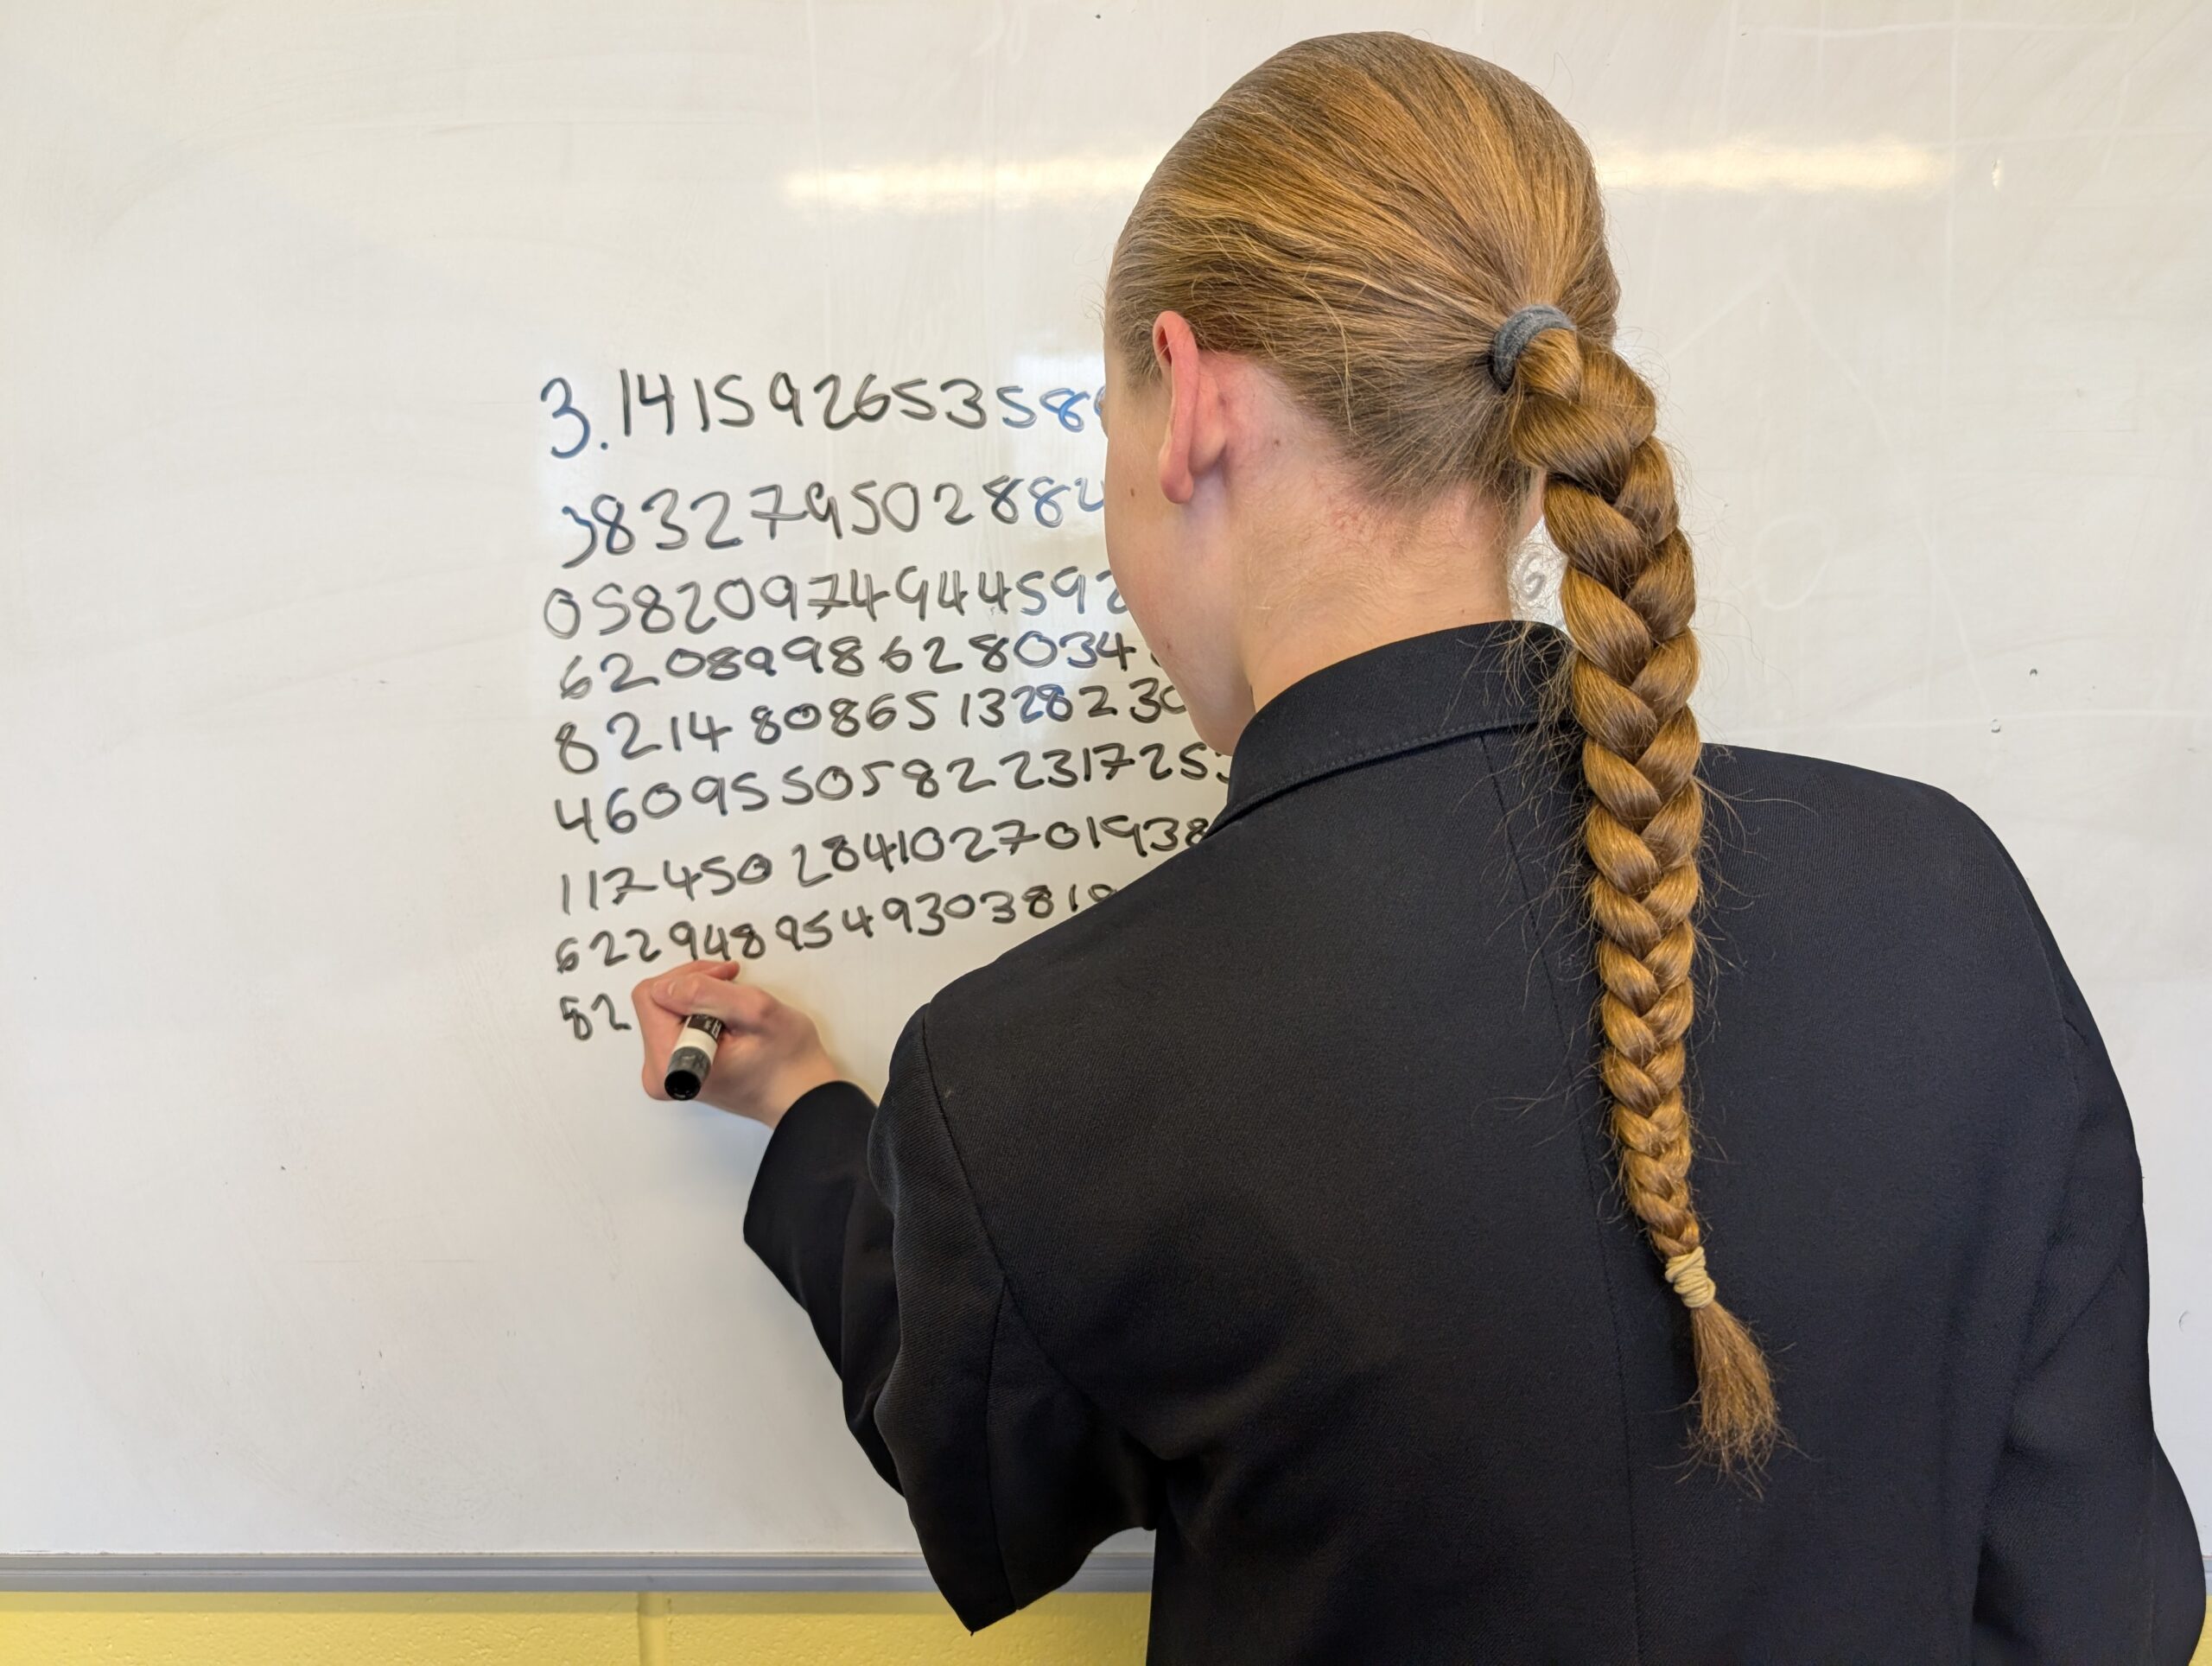 3.14159265358
383279502884
05820974944592
6208998628034
8214808651328230
4609550582231725
117450284102701938
6229489549303819
82